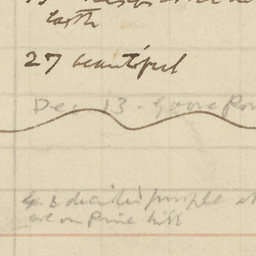 Earth
27 beautiful
Dec 13 - Goose Pon
& decided purple
are on Pine hill